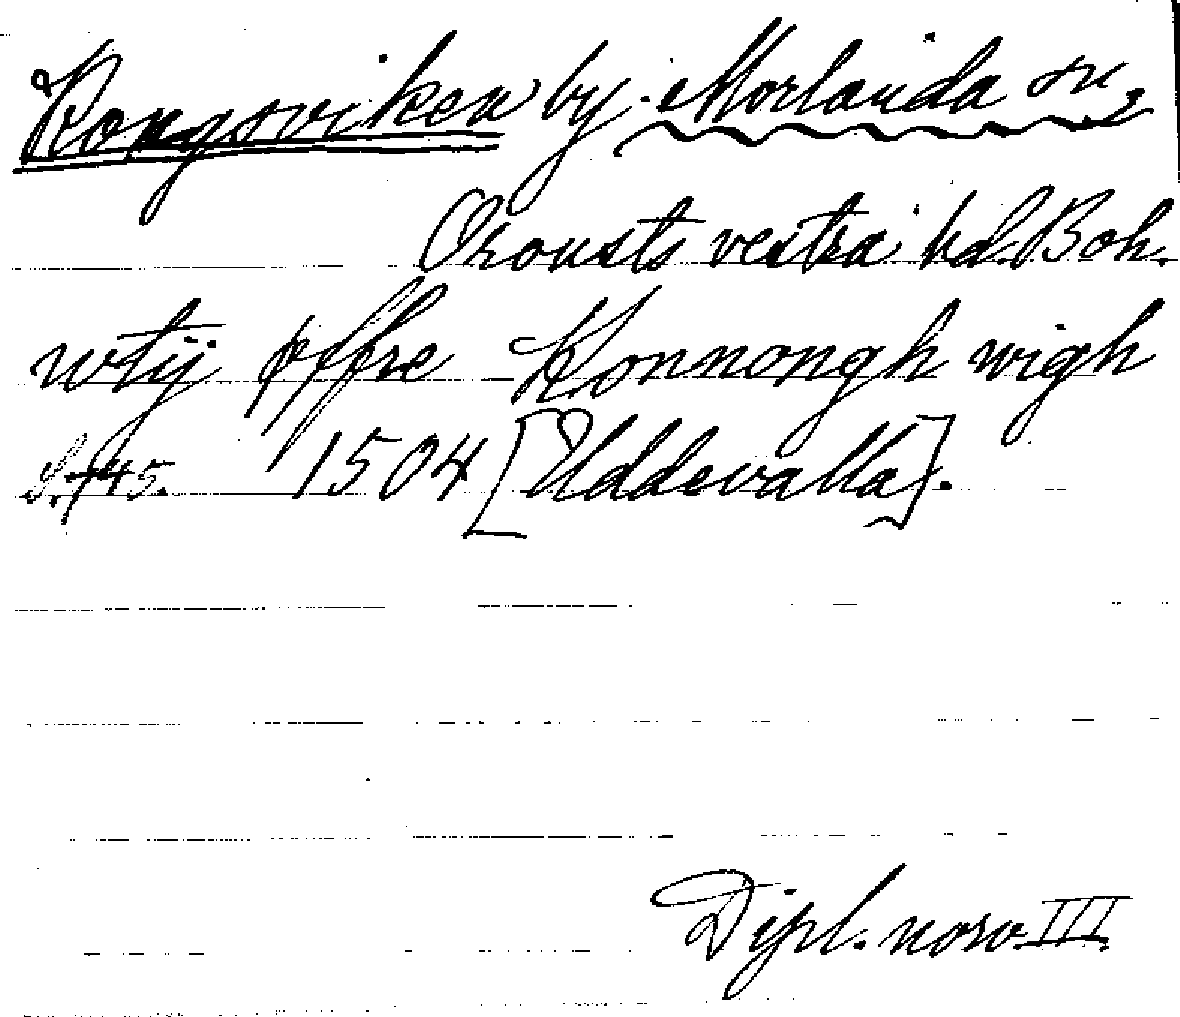 Kongsviken by Morlanda sn,
Orousts vestra hd. Boh.
wtij pffre Konnongh wigh
S. 745. 1504 [Uddevalla].
Dipl. norv. III